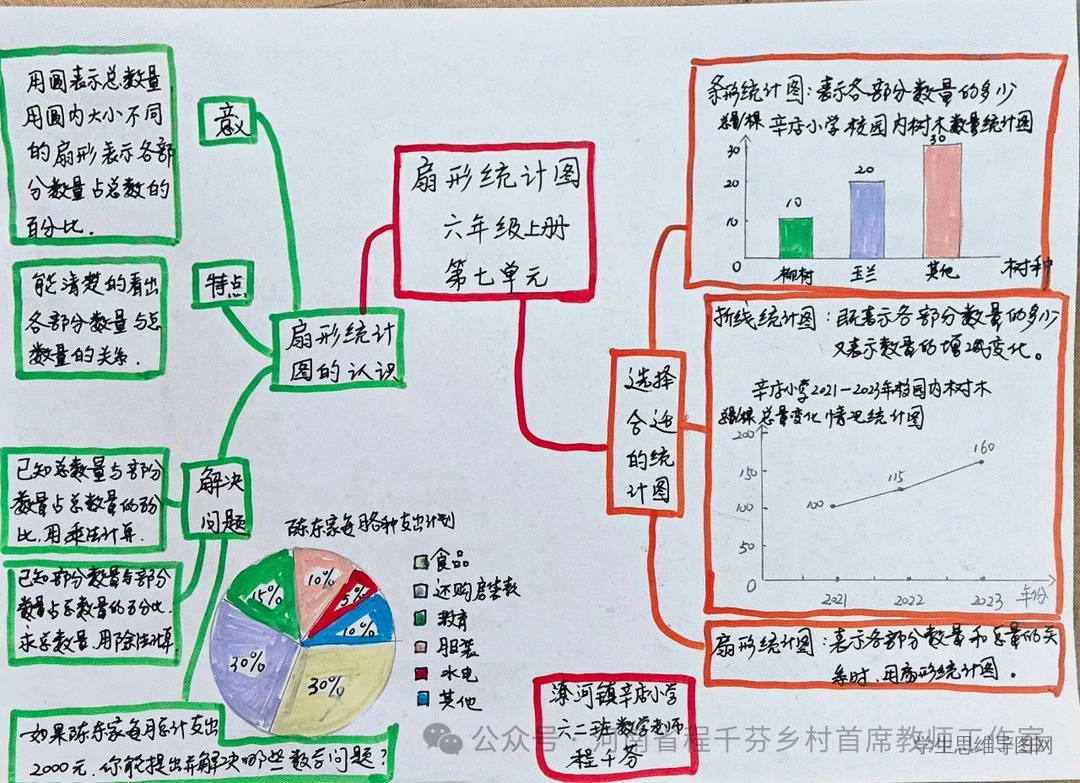 扇形统计图
六年级上册
第七单元
扇形统计
图的认识
意义
用圆表示总数量,
用圆内大小不同
的扇形表示各部
分数量占总数的
百分比.
特点
能清楚的看出
各部分数量与总
数量的关系.
解决
问题
已知总数量与部分
数量占总数量的百分
比,用乘法计算.
已知部分数量与部分
数量占总数量的百分比.
求总数量,用除法计算.
如果陈东家每月总计支出
2000元,你能提出并解决哪些数学问题?
陈东家每月各种支出计划
15%
10%
5%
10%
30%
30%
食品
还购房贷款
教育
服装
水电
其他
选择
合适
的统
计图
条形统计图:表示各部分数量的多少
总量/棵 辛店小学校园内树木数量统计图
30
20
10
0
10
20
30
柳树 玉兰 其他 树种
折线统计图:既表示各部分数量的多少
又表示数量的增减变化。
辛店小学2021—2023年校园内树木
总量/棵 总量变化情况统计图
200
150
100
50
0
100
115
160
2021 2022 2023 年份
扇形统计图:表示各部分数量和总量的关
系时,用扇形统计图。
辛店小学
六二班数学老师
程千芬
公众号·河南省程千芬乡村首席教师工作室
学生思维导图网